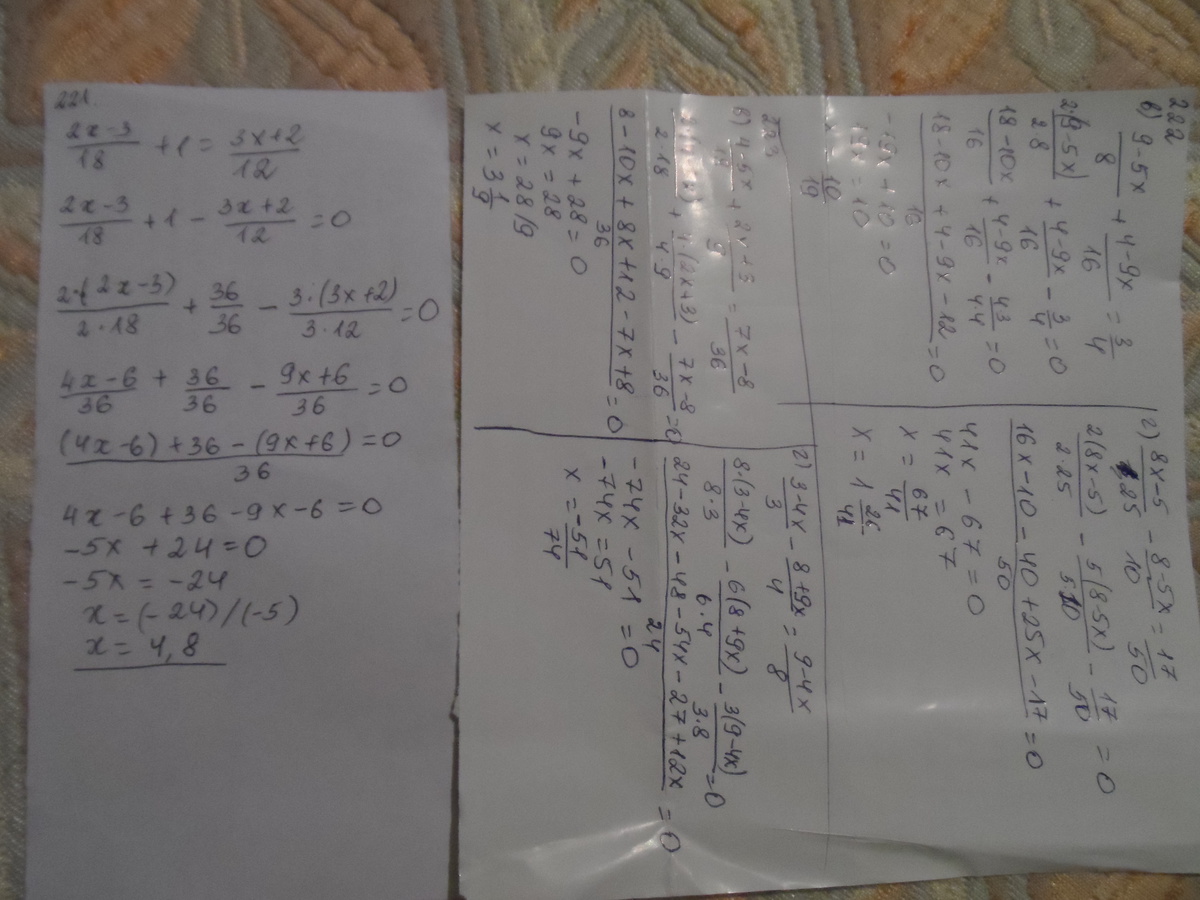 221.
(2x-3)/18 + 1 = (3x+2)/12
(2x-3)/18 + 1 - (3x+2)/12 = 0
2·(2x-3)/2·18 + 36/36 - 3·(3x+2)/3·12 = 0
(4x-6)/36 + 36/36 - (9x+6)/36 = 0
((4x-6)+36-(9x+6))/36 = 0
4x-6+36-9x-6=0
-5x+24=0
-5x=-24
x=(-24)/(-5)
x=4,8
222
в) (9-5x)/8 + (4-9x)/16 = 3/4
2·(9-5x)/2·8 + (4-9x)/16 - 3/4 = 0
(18-10x)/16 + (4-9x)/16 - 4·3/4·4 = 0
(18-10x+4-9x-12)/16 = 0
-19x+10=0
19x=10
10/19
г) (8x-5)/25 - (8-5x)/10 = 17/50
2(8x-5)/2·25 - 5(8-5x)/50 - 17/50 = 0
(16x-10-40+25x-17)/50 = 0
41x-67=0
41x=67
x=67/41
x=1 26/41
223
в) (4-5x)/18 + (2x+3)/9 = (7x-8)/36
2·18 + 4·(2x+3)/4·9 - (7x-8)/36 = 0
(8-10x+8x+12-7x+8)/36 = 0
-9x+28=0
9x=28
x=28/9
x=3 1/9
г) (3-4x)/3 - (8+9x)/4 = (9-4x)/8
8·(3-4x)/8·3 - 6(8+9x)/6·4 - 3(9-4x)/3·8 = 0
(24-32x-48-54x-27+12x)/24 = 0
-74x-51=0
-74x=51
x=-51/74